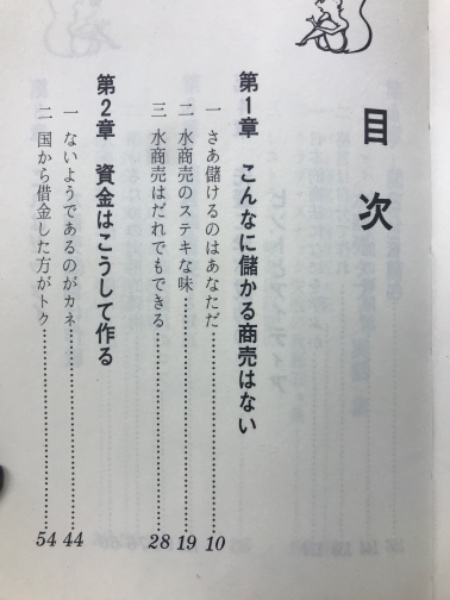 目次
第1章 こんなに儲かる商売はない
一 さあ儲けるのはあなただ……10
二 水商売のステキな味……19
三 水商売はだれでもできる……28
第2章 資金はこうして作る
一 ないようであるのがカネ……44
二 国から借金した方がトク……54